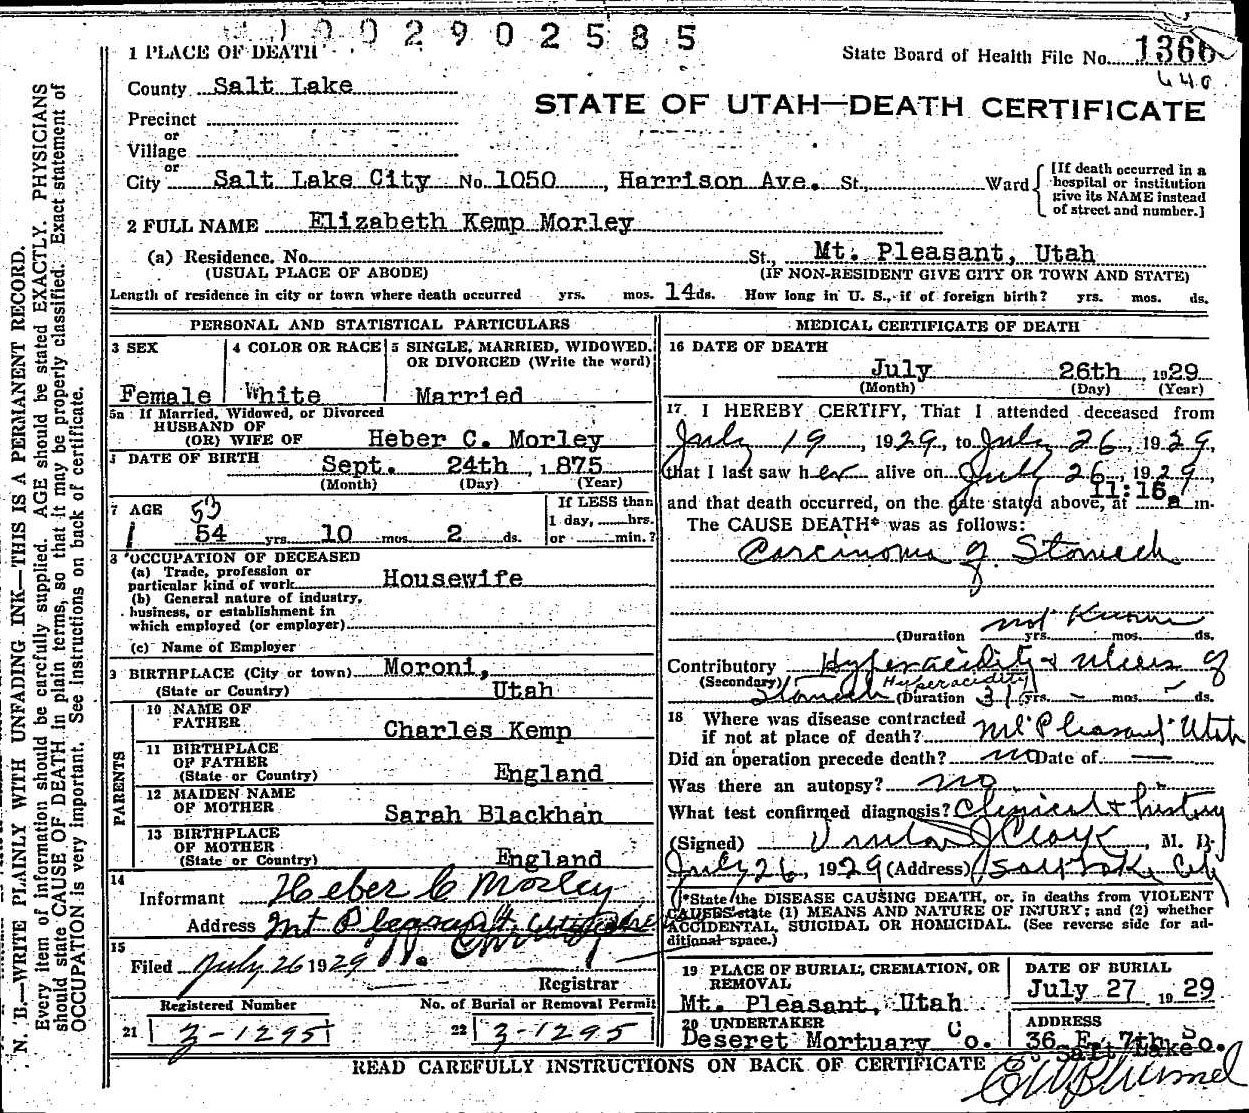 1002902585
1 PLACE OF DEATH
State Board of Health File No. 1366
640
County Salt Lake
STATE OF UTAH—DEATH CERTIFICATE
Precinct
or
Village
or
City Salt Lake City No. 1050, Harrison Ave. St., Ward
[If death occurred in a
hospital or institution
give its NAME instead
of street and number.]
2 FULL NAME Elizabeth Kemp Morley
(a) Residence. No. St., Mt. Pleasant, Utah
(USUAL PLACE OF ABODE) (IF NON-RESIDENT GIVE CITY OR TOWN AND STATE)
Length of residence in city or town where death occurred yrs. mos. 14 ds. How long in U. S., if of foreign birth? yrs. mos. ds.
PERSONAL AND STATISTICAL PARTICULARS
3 SEX
Female
4 COLOR OR RACE
White
5 SINGLE, MARRIED, WIDOWED,
OR DIVORCED (Write the word)
Married
5a If Married, Widowed, or Divorced
HUSBAND OF
(OR) WIFE OF Heber C. Morley
DATE OF BIRTH Sept. 24th, 1875
(Month) (Day) (Year)
7 AGE 53
54 yrs. 10 mos. 2 ds.
If LESS than
1 day, hrs.
or min.?
8 OCCUPATION OF DECEASED
(a) Trade, profession or
particular kind of work Housewife
(b) General nature of industry,
business, or establishment in
which employed (or employer)
(c) Name of Employer
9 BIRTHPLACE (City or town) Moroni,
(State or Country) Utah
PARENTS
10 NAME OF
FATHER Charles Kemp
11 BIRTHPLACE
OF FATHER
(State or Country) England
12 MAIDEN NAME
OF MOTHER Sarah Blackhan
13 BIRTHPLACE
OF MOTHER
(State or Country) England
14
Informant Heber C Morley
Address Mt Pleasant
15
Filed July 26 1929
Registrar
Registered Number
21 3-1295
No. of Burial or Removal Permit
22 3-1295
MEDICAL CERTIFICATE OF DEATH
16 DATE OF DEATH
July 26th, 1929
(Month) (Day) (Year)
17. I HEREBY CERTIFY, That I attended deceased from
July 19, 1929, to July 26, 1929,
that I last saw her alive on July 26, 1929,
and that death occurred, on the date stated above, at 11:15 a m.
The CAUSE DEATH* was as follows:
Carcinoma of Stomach
not Known
(Duration yrs. mos. ds.
Contributory Hyperacidity & ulcers of
(Secondary) Stomach Hyperacidity (Duration 31 yrs. - mos. - ds.
18 Where was disease contracted
if not at place of death? Mt Pleasant Utah
Did an operation precede death? no Date of —
Was there an autopsy? no
What test confirmed diagnosis? Clinical & history
(Signed) , M. D.
July 26, 1929 (Address) Salt Lake City
*State the DISEASE CAUSING DEATH, or, in deaths from VIOLENT
CAUSES state (1) MEANS AND NATURE OF INJURY; and (2) whether
ACCIDENTAL, SUICIDAL OR HOMICIDAL. (See reverse side for ad-
ditional space.)
19 PLACE OF BURIAL, CREMATION, OR
REMOVAL
Mt. Pleasant, Utah
DATE OF BURIAL
July 27 1929
20 UNDERTAKER
Deseret Mortuary Co.
ADDRESS
36 E. 7th So.
Salt Lake
READ CAREFULLY INSTRUCTIONS ON BACK OF CERTIFICATE
N. B.—WRITE PLAINLY WITH UNFADING INK—THIS IS A PERMANENT RECORD.
Every item of information should be carefully supplied. AGE should be stated EXACTLY. PHYSICIANS
should state CAUSE OF DEATH in plain terms, so that it may be properly classified. Exact statement of
OCCUPATION is very important. See instructions on back of certificate.